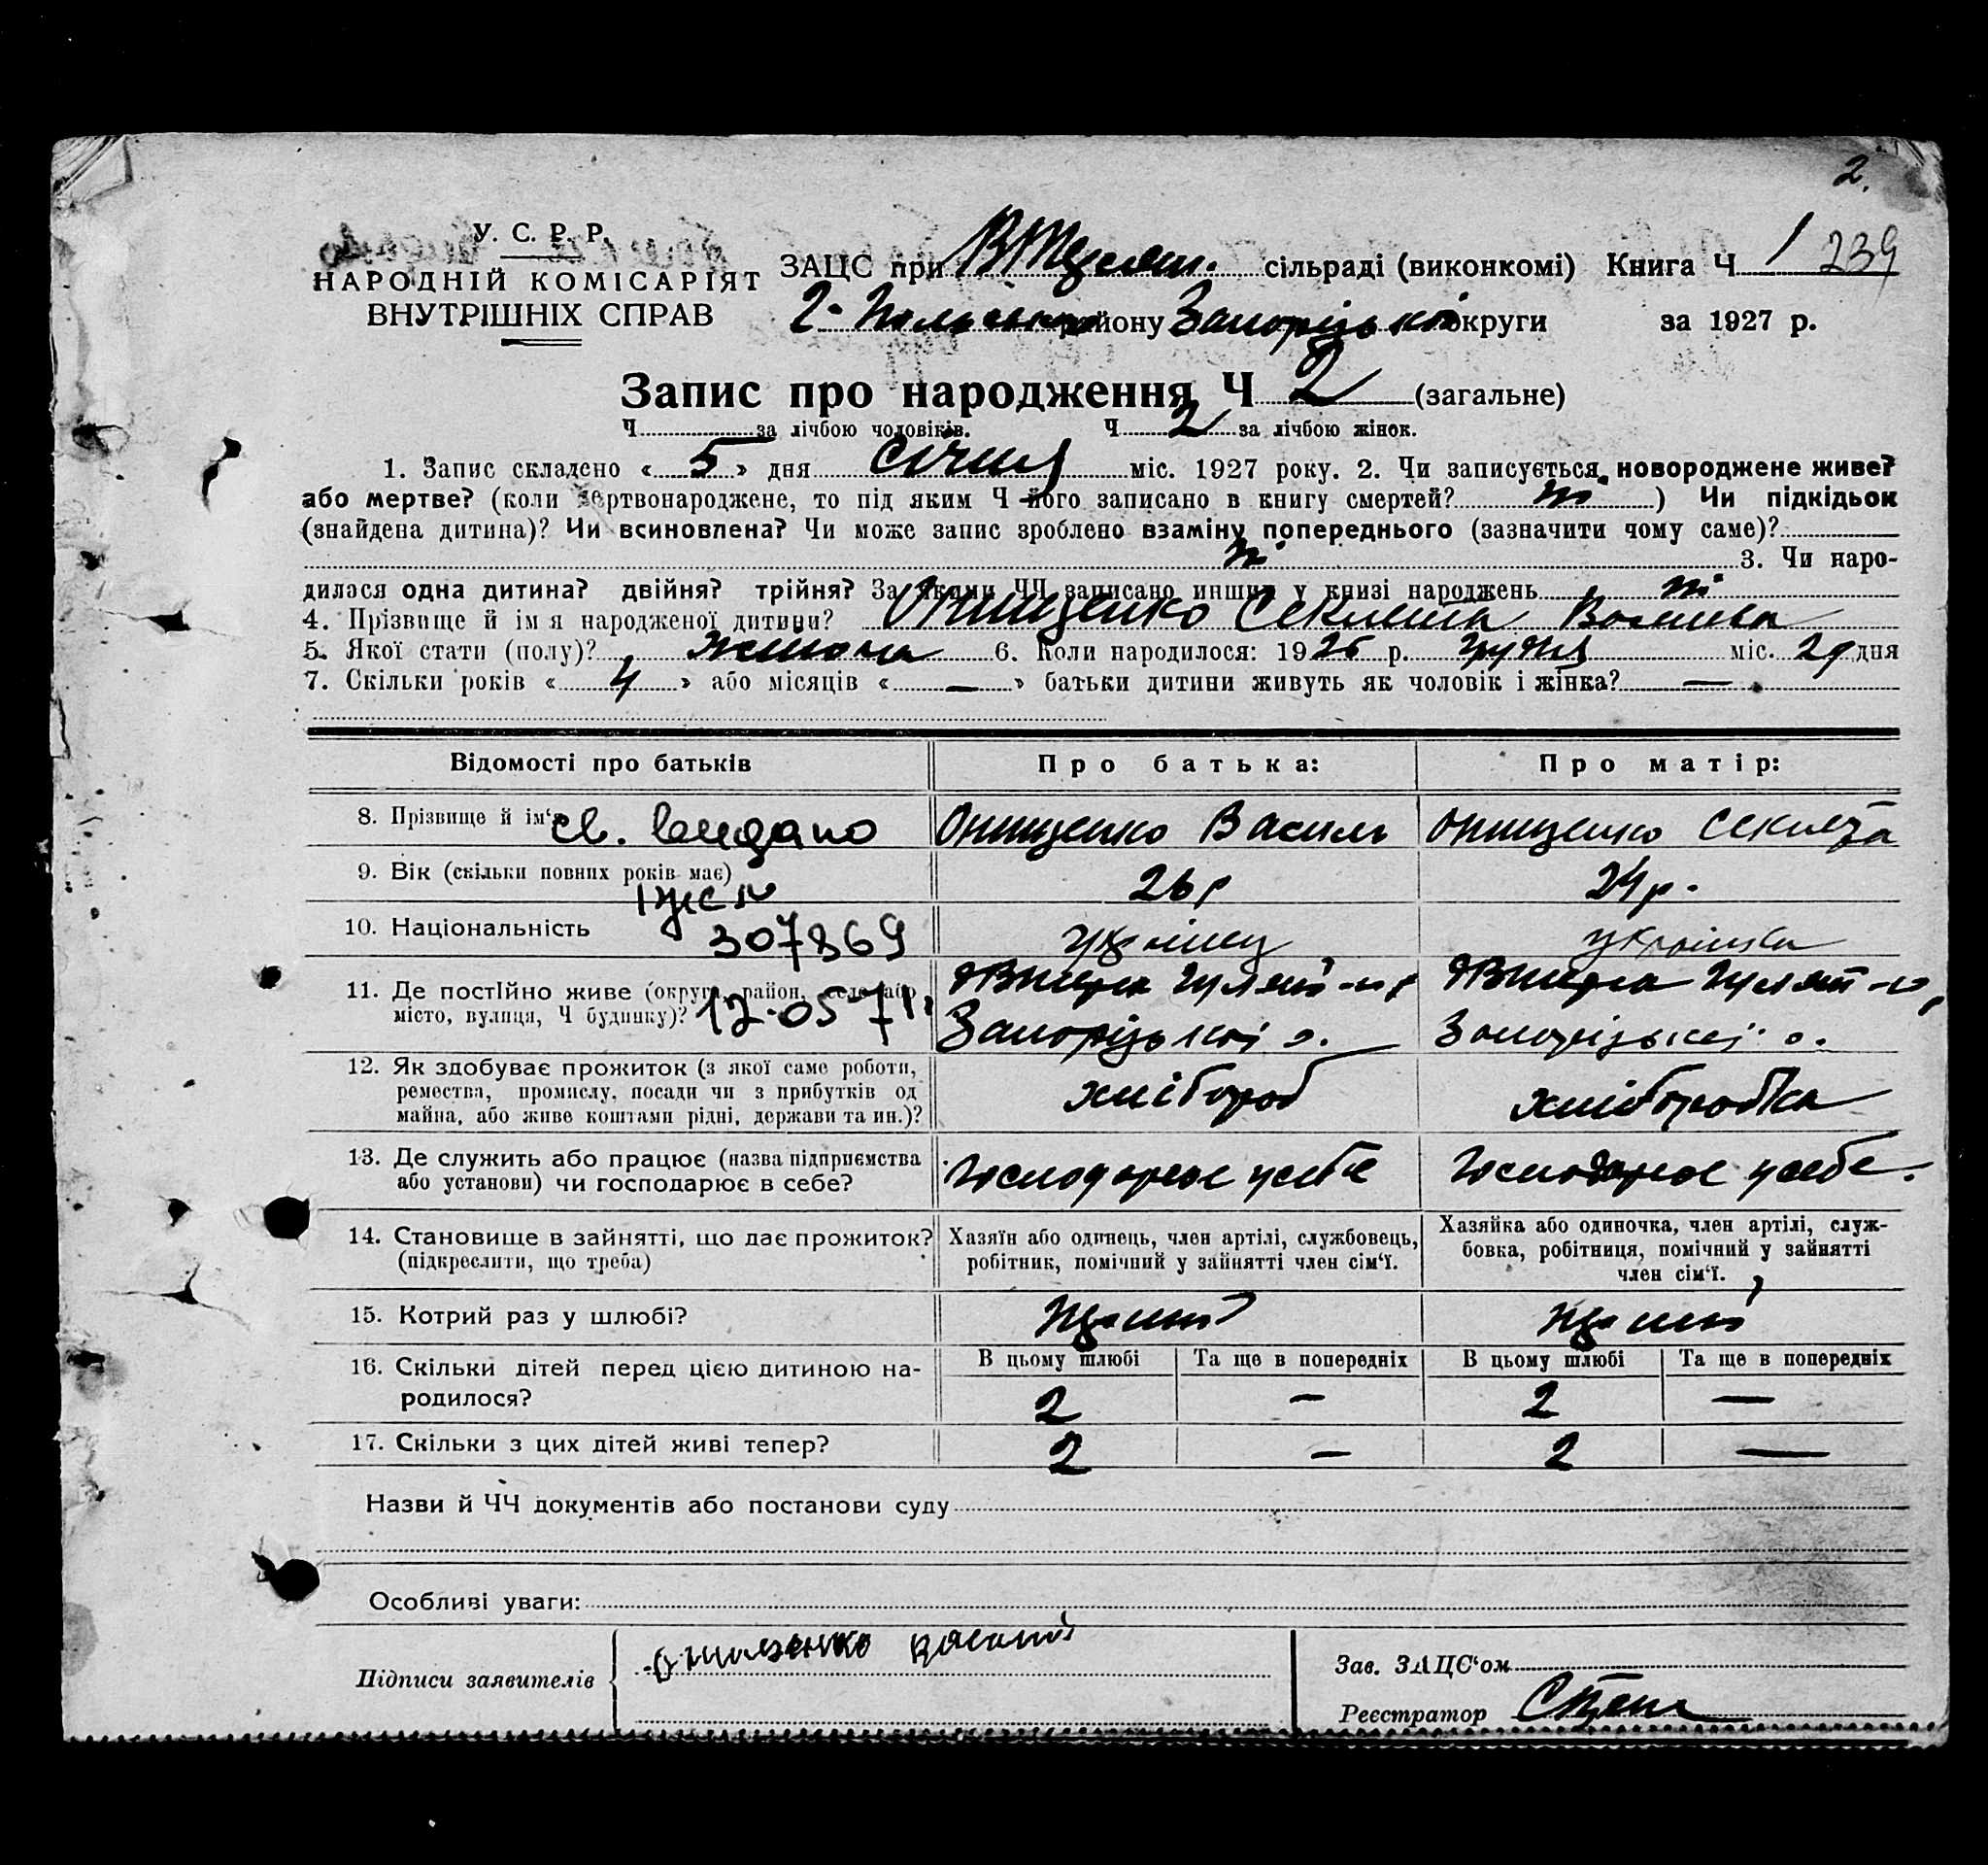 2.
У. С. Р. Р.
НАРОДНІЙ КОМІСАРІЯТ
ВНУТРІШНІХ СПРАВ
ЗАЦС при сільраді (виконкомі) Книга Ч 1 239
району Запорізької округи за 1927 р.
Запис про народження Ч 2 (загальне)
Ч за лічбою чоловіків. Ч 2 за лічбою жінок.
1. Запис складено « 5 » дня Січня міс. 1927 року. 2. Чи записується новороджене живе?
або мертве? (коли мертвонароджене, то під яким Ч його записано в книгу смертей? ні ) Чи підкідьок
(знайдена дитина)? Чи всиновлена? Чи може запис зроблено взаміну попереднього (зазначити чому саме)?
ні 3. Чи наро-
дилася одна дитина? двійня? трійня? За якими ЧЧ записано инших у книзі народжень ні
4. Прізвище й ім я народженої дитини? Онищенко Секлета
5. Якої стати (полу)? жіноча 6. Коли народилося: 1926 р. грудня міс. 29 дня
7. Скільки років « 4 » або місяців « — » батьки дитини живуть як чоловік і жінка? —
Відомості про батьків Про батька: Про матір:
8. Прізвище й ім'я св. видано Онищенко Василь Онищенко Секлета
9. Вік (скільки повних років має) 26 р 24 р.
10. Національність 307869 українец українка
11. Де постІйно живе (округа, район, село або
місто, вулиця, Ч будинку)? 12.05 71. Запорізької о. Запорізької о.
12. Як здобуває прожиток (з якої саме роботи,
ремества, промислу, посади чи з прибутків од
майна, або живе коштами рідні, держави та ин.)? хлібороб хліборобка
13. Де служить або працює (назва підприємства
або установи) чи господарює в себе? Господарює у себе Господарює у себе.
14. Становище в зайнятті, що дає прожиток?
(підкреслити, що треба)
Хазяїн або одинець, член артілі, службовець,
робітник, помічний у зайнятті член сім'ї.
Хазяйка або одиночка, член артілі, служ-
бовка, робітниця, помічний у зайнятті
член сім'ї.
15. Котрий раз у шлюбі?
16. Скільки дітей перед цією дитиною на-
родилося?
В цьому шлюбі Та ще в попередніх В цьому шлюбі Та ще в попередніх
2 — 2 —
17. Скільки з цих дітей живі тепер? 2 — 2 —
Назви й ЧЧ документів або постанови суду
Особливі уваги:
Підписи заявителів
Онищенко
Зав. ЗАЦС'ом
Реєстратор